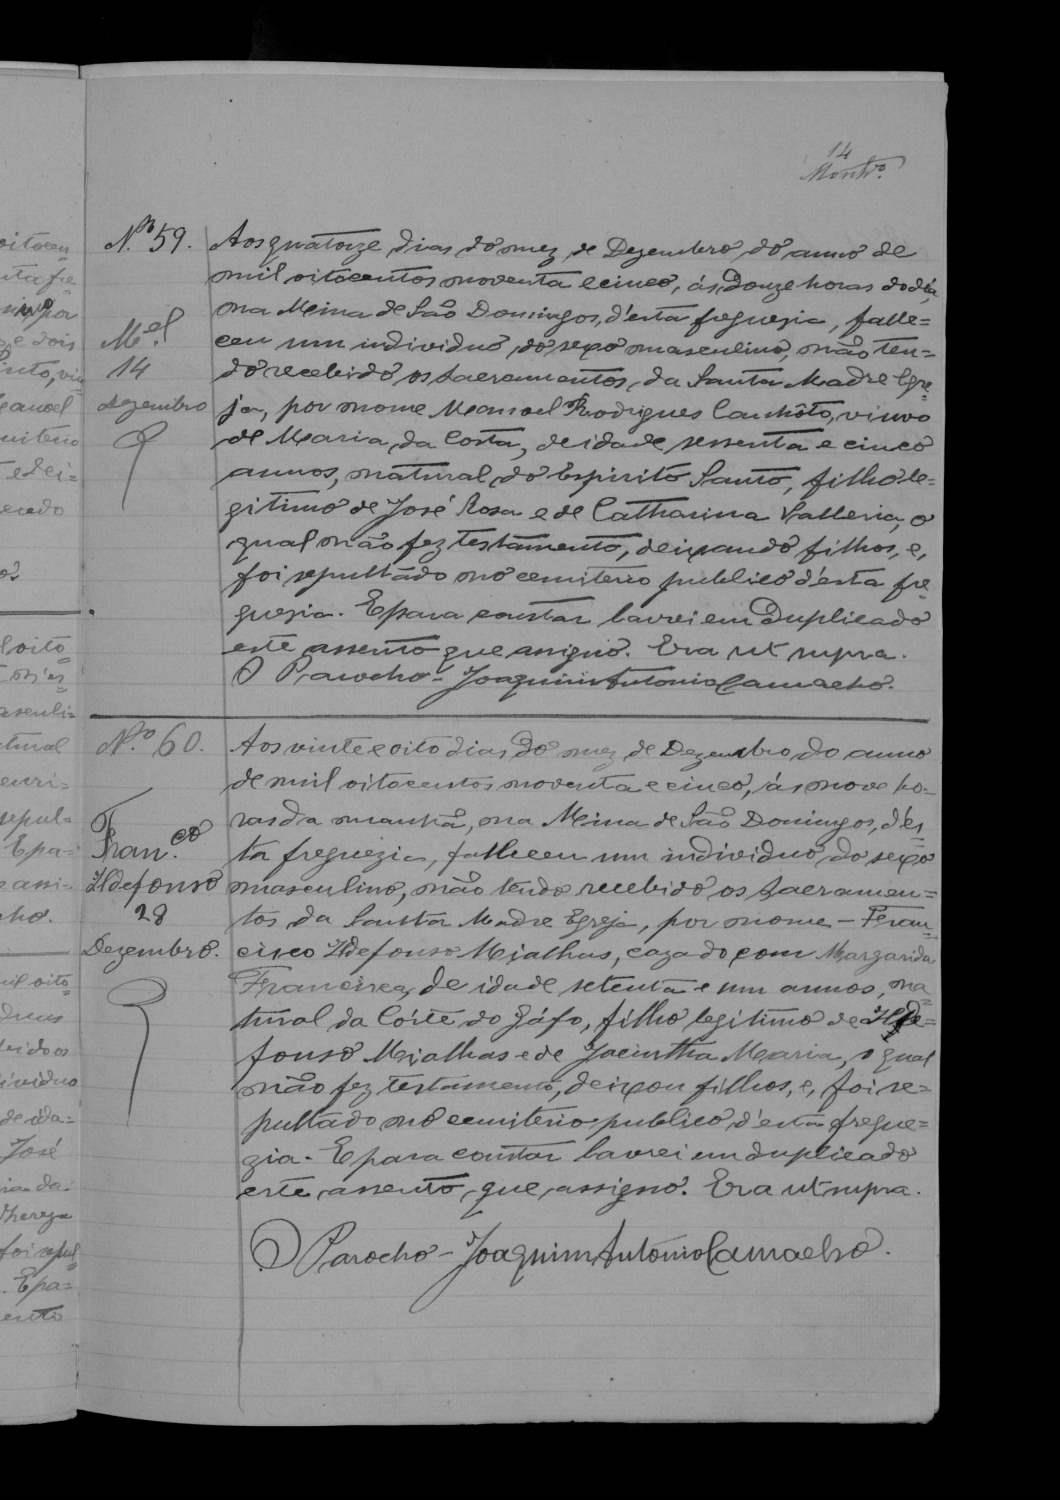 14
Montr.º
N.º 59.
M.el
14
dezembro
Aos quatorze dias do mez de Dezembro do anno de
mil oitocentos noventa e cinco, ás douze horas do dia,
na Mina de São Domingos, d'esta freguezia, falle=
ceu um individuo do sexo masculino, não ten=
do recebido os sacramentos da Santa Madre Egre=
ja, por nome Manoel Rodrigues Canhôto, viuvo
de Maria da Costa, de idade sessenta e cinco
annos, natural do Espirito Santo, filho le=
gitimo de José Rosa e de Catharina Valleria, o
qual não fez testamento, deixando filhos, e,
foi sepultado no cemiterio publico d'esta fre=
guezia. E para constar lavrei em duplicado
este assento que assigno. Era ut supra.
O Parocho - Joaquim Antonio Camacho.
N.º 60.
Fran.co
Ildefonso
28
Dezembro.
Aos vinte e oito dias do mez de Dezembro do anno
de mil oitocentos noventa e cinco, ás nove ho-
ras da manhã, na Mina de São Domingos, d'es=
ta freguezia, falleceu um individuo do sexo
masculino, não tendo recebido os sacramen=
tos da Santa Madre Egreja, por nome - Fran=
cisco Ildefonso Mialhas, cazado com Margarida
Francisca, de idade setenta e um annos, na=
tural da Côrte do Gáfo, filho legitimo de Ilde=
fonso Mialhas e de Jacintha Maria, o qual
não fez testamento, deixou filhos, e, foi se=
pultado no cemiterio publico d'esta fregue=
zia. E para constar lavrei em duplicado
este assento, que assigno. Era ut supra.
O Parocho - Joaquim Antonio Camacho.